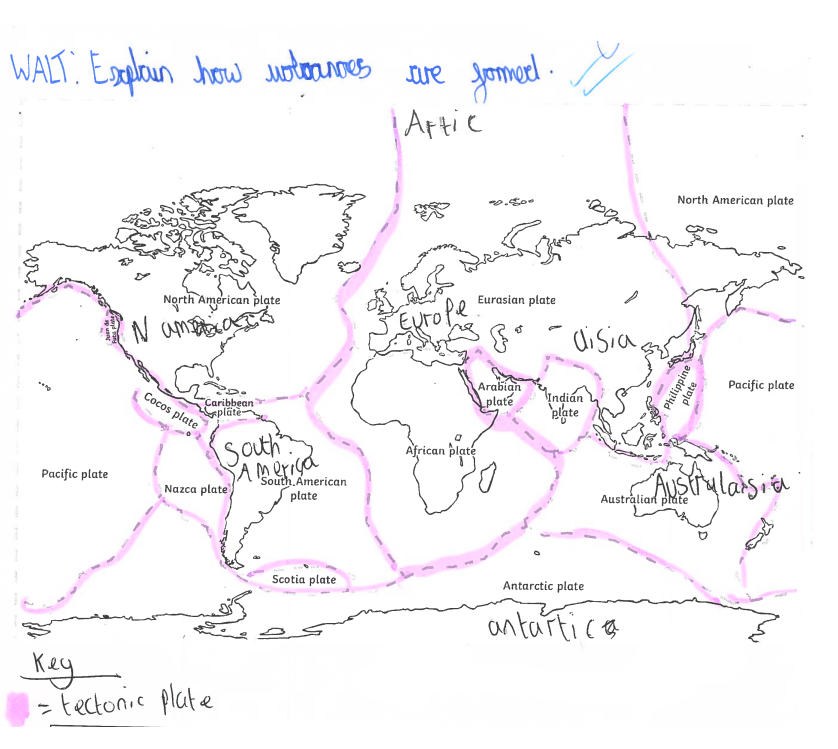 WALT: Explain how volcanoes are formed.
Artic
North American plate
North American plate
Eurasian plate
Europe
N america
aisia
Juan de Fuca plate
Arabian plate
Indian plate
Philippine plate
Pacific plate
Caribbean plate
Cocos plate
South America
African plate
Pacific plate
Nazca plate
South American plate
Australasia
Australian plate
Scotia plate
Antarctic plate
antartica
Key
= tectonic plate